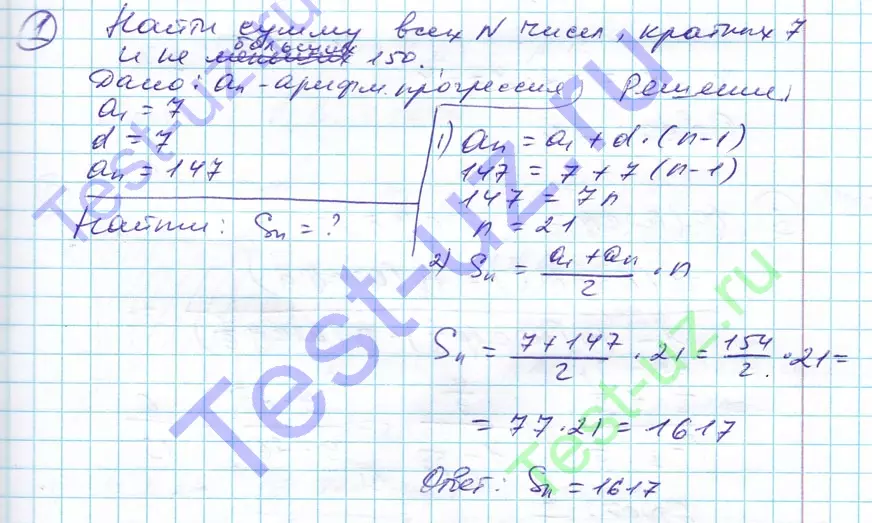 1 Найти сумму всех N чисел, кратных 7
и не больших 150.
Дано: an - арифм. прогрессия
a1 = 7
d = 7
an = 147
Найти: Sn = ?
Решение:
1) an = a1 + d · (n-1)
147 = 7 + 7 (n-1)
147 = 7n
n = 21
2) Sn = (a1 + an)/2 · n
Sn = (7 + 147)/2 · 21 = 154/2 · 21 =
= 77 · 21 = 1617
Ответ: Sn = 1617
Test-uz.ru
Test-uz.ru
Test-uz.ru